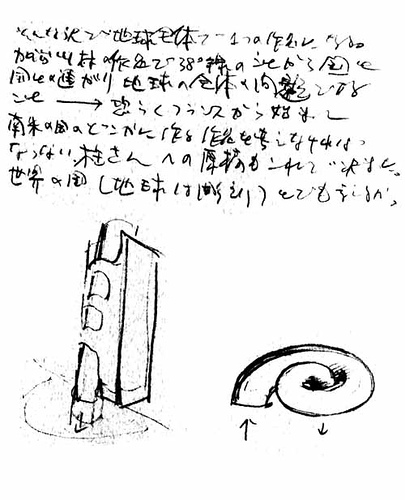 そんな訳で地球全体で一つの作品になる
の作品で38°線のことから国と
国との連がり地球の全体の問題である
こと→恐らくフランスから始まって
南米の国のどこかに作る作品を考えなければ
ならない さんへの原稿もこれで決まった。
世界の国（地球は彫刻）とでもするか。